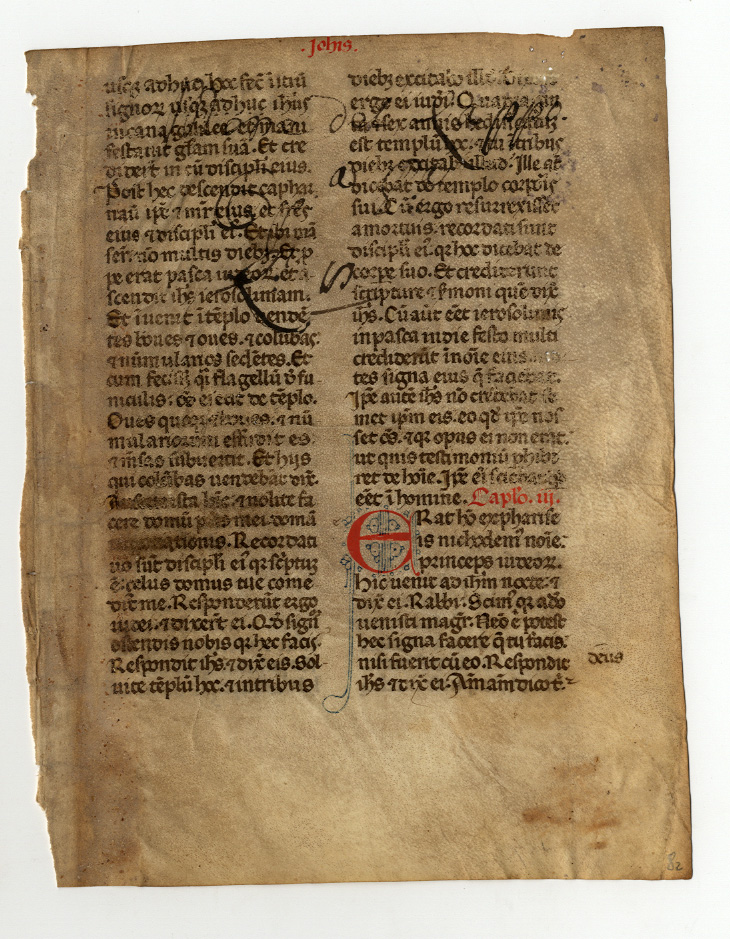 .Johīs.
usq3 adhuc. hoc fec̄ ītiū
signoꝝ usq3 adhuc ihūs
ī cana galilee. et mani
festauit gl̄am suā. Et cre
diderūt in eū discipl̄i eius.
Post hec descendit caphar
naū ip̄e ⁊ mr̄ eius. et fr̄es
eius ⁊ discipl̄i ei᾽. Et ibi mā
ser̄t nō multis dieb3. Et ꝓ
pe erat pasca iudeoꝝ. et a
scendit ih̄s ierosolimam.
Et īuenit ī tēplo uendē
tes boues ⁊ oues. ⁊ colūbas.
⁊ nūmularios sedētes. Et
cum fecisset q̄i flagellū d̄ fu
niculis: oēs eiecit de tēplo.
Oues quoq3 ⁊ boues. ⁊ nū
mulariorum effudit es
⁊ mēsas subuertit. Et hijs
qui colūbas uendebāt dix̄.
Auferte ista hīc. ⁊ nolite fa
cere domū pris mei. domū
negotiationis. Recordati
uō sūt discipl̄i ei᾽ qr sc̄ptuȝ
ē. celus domus tue come
dit me. Responderūt ergo
iudei. ⁊ dixert ei. Qd̄ signū
ostendis nobis qr hec facis.
Respondit ih̄s. ⁊ dix̄ eis. Sol
uite tēplū hoc. ⁊ in tribus
dieb3 excitabo illud.
ergo ei iudei. Quadraginta
et sex annis hedificatū
est templū hoc. ⁊ tu ī tribus
dieb3 excitab illud. Ille aūt
dicebat de templo corpis
sui. Cū ergo resurrexisset
a mortuis. recordati sunt
discipl̄i ei᾽. qr hoc dicebat de
corpe suo. Et crediderunt
scripture ⁊ s̄moni quē dix̄
ih̄s. Cū aut eēt ierosolimis
in pasca in die festo multi
crediderūt ī noīe eius uiden
tes signa eius q̄ faciebat.
Ip̄e autē ih̄s nō credebat se
met ip̄m eis. eo qd̄ ip̄e nos
set oēs. ⁊ qr opus ei non erat.
ut quis testimoniū phibe
ret de hoīe. Ip̄e ei sciebat qd
eēt ī homine. Capl̄o. iij.
ERat hō ex pharise
is nichodem᾽ noīe.
princeps iudeoꝝ.
Hic uenit ad ih̄m nocte. ⁊
dix̄ ei. Rabbi. Scim᾽ qr a dō
uenisti magr̄. Nēo ē potest
hec signa facere q̄ tu facis.
nisi fuerit cū eo. Respondit dēus
ih̄s ⁊ dix̄ ei. Am̄ am̄ dico t̄.
82